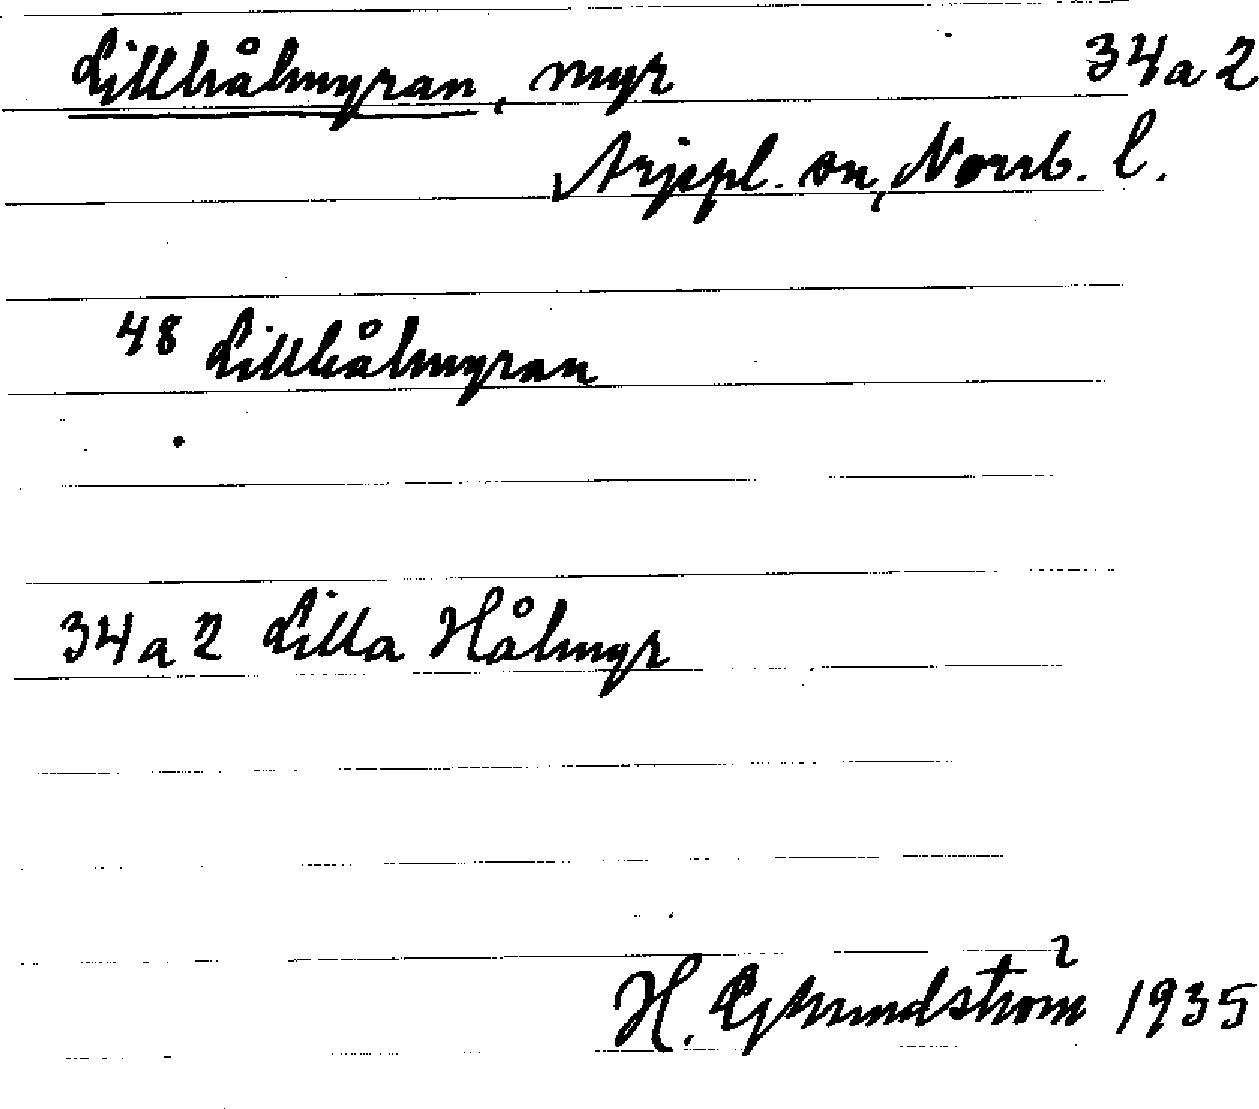 Lillhålmyran, myr 34a2
Arjepl. sn, Norrb. l.
48 Lillhålmyran
34a2 Lilla Hålmyr
H. Grundström 1935